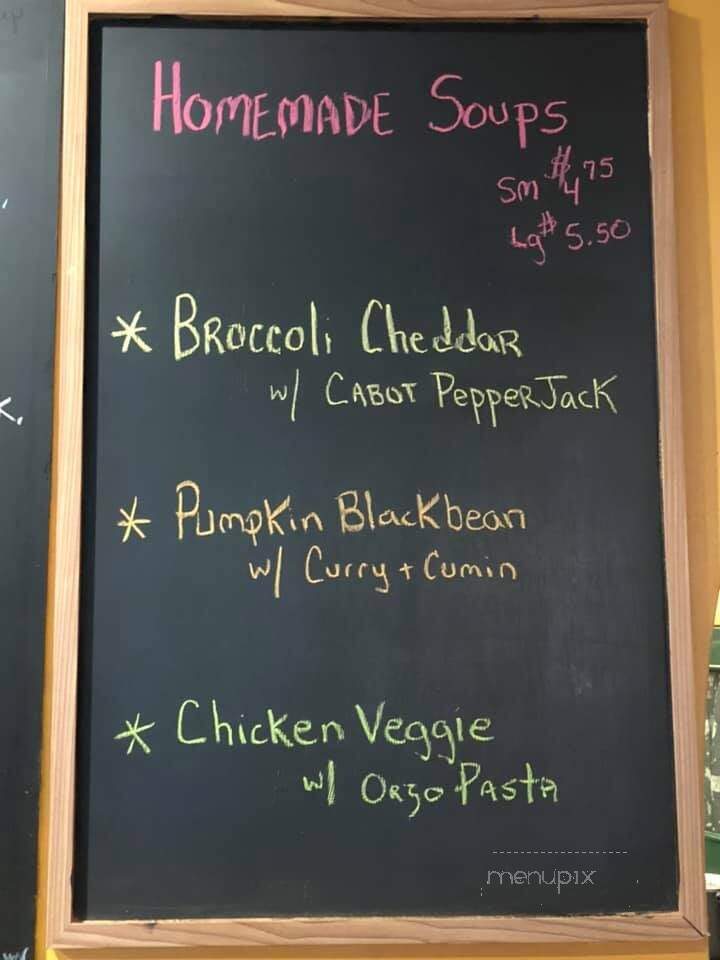 HOMEMADE SOUPS
Sm $4.75
Lg $5.50
* BROCCOLi CheddaR
w/ CABOT PepperJacK
* Pumpkin Blackbean
w/ Curry + Cumin
* Chicken Veggie
w/ ORzO PASTA
menupix